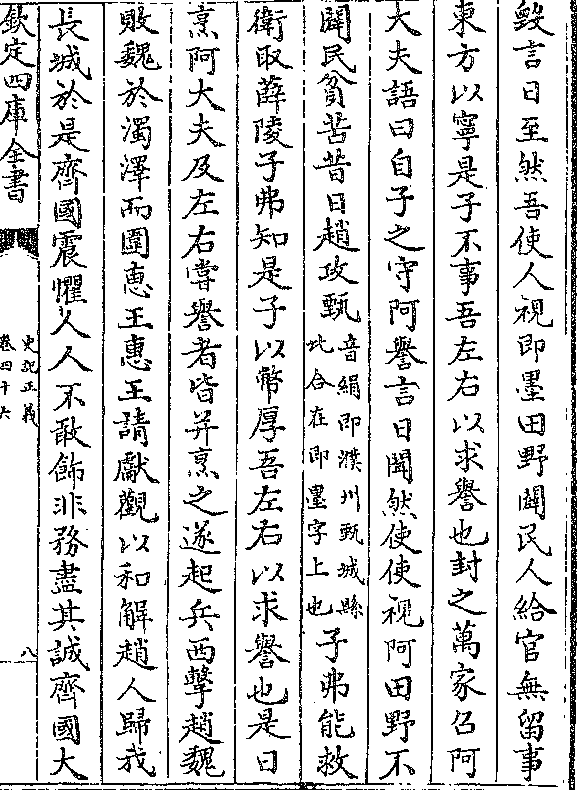 毀言日至然吾使人視即墨田野闢民人給官無留事
東方以寧是子不事吾左右以求譽也封之萬家召阿
大夫語曰自子之守阿譽言日聞然使使視阿田野不
闢民貧苦昔日趙攻甄音絹即濮州甄城縣此合在即墨字上也子弗能救
衛取薛陵子弗知是子以幣厚吾左右以求譽也是日
烹阿大夫及左右嘗譽者皆并烹之遂起兵西擊趙魏
敗魏於濁澤而圍惠王惠王請獻觀以和解趙人歸我
長城於是齊國震懼人人不敢飾非務盡其誠齊國大
欽定四庫全書
史記正義
卷四十六
八